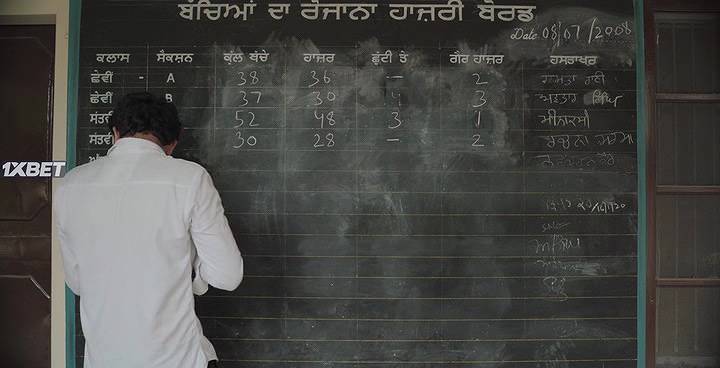 ਬੱਚਿਆਂ ਦਾ ਰੋਜਾਨਾ ਹਾਜ਼ਰੀ ਬੋਰਡ
Date 08/07/2008
ਕਲਾਸ ਸੈਕਸ਼ਨ ਕੁੱਲ ਬੱਚੇ ਹਾਜਰ ਛੁੱਟੀ ਤੇ ਗੈਰ ਹਾਜਰ ਹਸਤਾਖਰ
ਛੇਵੀਂ - A 38 36 - 2
ਛੇਵੀਂ B 37 30 4 3 ਅਵਤਾਰ ਸਿੰਘ
ਸੱਤਵੀਂ 52 48 3 1 ਮੀਨਾਕਸ਼ੀ
ਸੱਤਵੀਂ 30 28 - 2
1XBET